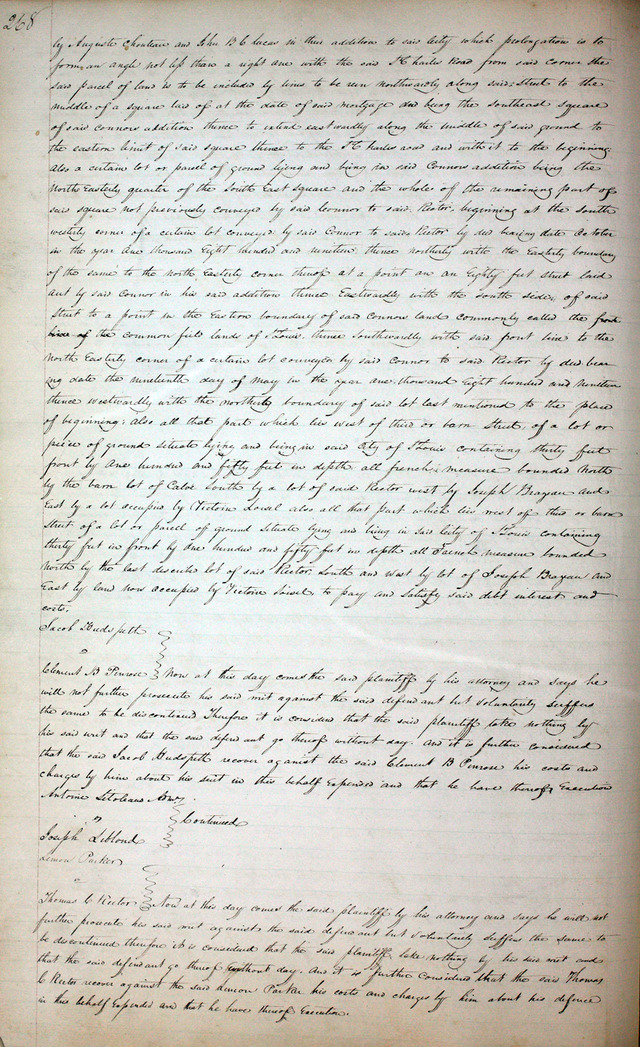 268
by Auguste Chouteau and John B C Lucas in their addition to said City which prolongation is to
form an angle not less than a right one with the said St Charles Road from said corner the
said parcel of land is to be included by lines to be run northwardly along said street to the
middle of a square laid of at the date of said mortgage and being the southeast square
of said connors addition thence to extend eastwardly along the middle of said ground to
the eastern limit of said square thence to the St Charles road and with it to the beginning
also a certain lot or parcel of ground lying and being in said Connors addition being the
North Easterly quarter of the South East Square and the whole of the remaining part of
said square not previously conveyed by said Connor to said Rector, beginning at the South
westerly corner of a certain lot conveyed by said Connor to said Rector by deed bearing date October
in the year one thousand Eight hundred and nineteen thence northerly with the Easterly boundary
of the same to the north Easterly corner thereof at a point on an Eighty feet street laid
out by said Connor in his said addition thence Eastwardly with the South side of said
street to a point in the Eastern boundary of said Connors land commonly called the front
of the common field lands of St Louis thence Southwardly with said front line to the
North Easterly corner of a certain lot conveyed by said Connor to said Rector by deed bear
ing date the nineteenth day of may in the year one thousand Eight hundred and Nineteen
thence westwardly with the northerly boundary of said lot last mentioned to the place
of beginning: also all that part which lies west of third or barn Street of a lot or
peice of ground situate lying and being in said City of St Louis containing thirty feet
front by one hundred and fifty feet in depth all french measure bounded North
by the barn lot of Calve South by a lot of said Rector west by Joseph Brazeau and
East by a lot occupied by Victoire Loisel also all that part which lies west of third or barn
Street of a lot or parcell of ground situate lying and being in said City of St Louis containing
thirty feet in front by one hundred and fifty feet in depth all French measure bounded
north by the last described lot of said Rector South and west by lot of Joseph Brazeau and
East by land now occupied by Victoire Loisel to pay and satisfy said debt interest and
costs.
Jacob Hudspeth
Clement B Penrose Now at this day comes the said plaintiff by his attorney and says he
will not further prosecute his said writ against the said defendant but Voluntarily Suffers
the same to be discontinued Therefore it is considered that the said plaintiff take nothing by
his said writ and that the said defendant go thereof without day. And it is further considered
that the said Jacob Hudspeth recover against the said Clement B Penrose his costs and
charges by him about his suit in this behalf Expended and that he have thereof Execution
Antoine
Continued
Joseph Leblond
Lemon Parker
Thomas C Rector Now at this day comes the said plaintiff by his attorney and says he will not
further prosecute his said writ against the said defendant but Voluntarily suffers the same to
be discontinued therefore it is considered that the said plaintiff take nothing by his said writ and
that the said defendant go thereof without day. And it is further considered that the said Thomas
C Rector recover against the said Lemon Parker his costs and charges by him about his defence
in this behalf Expended and that he have thereof Execution.